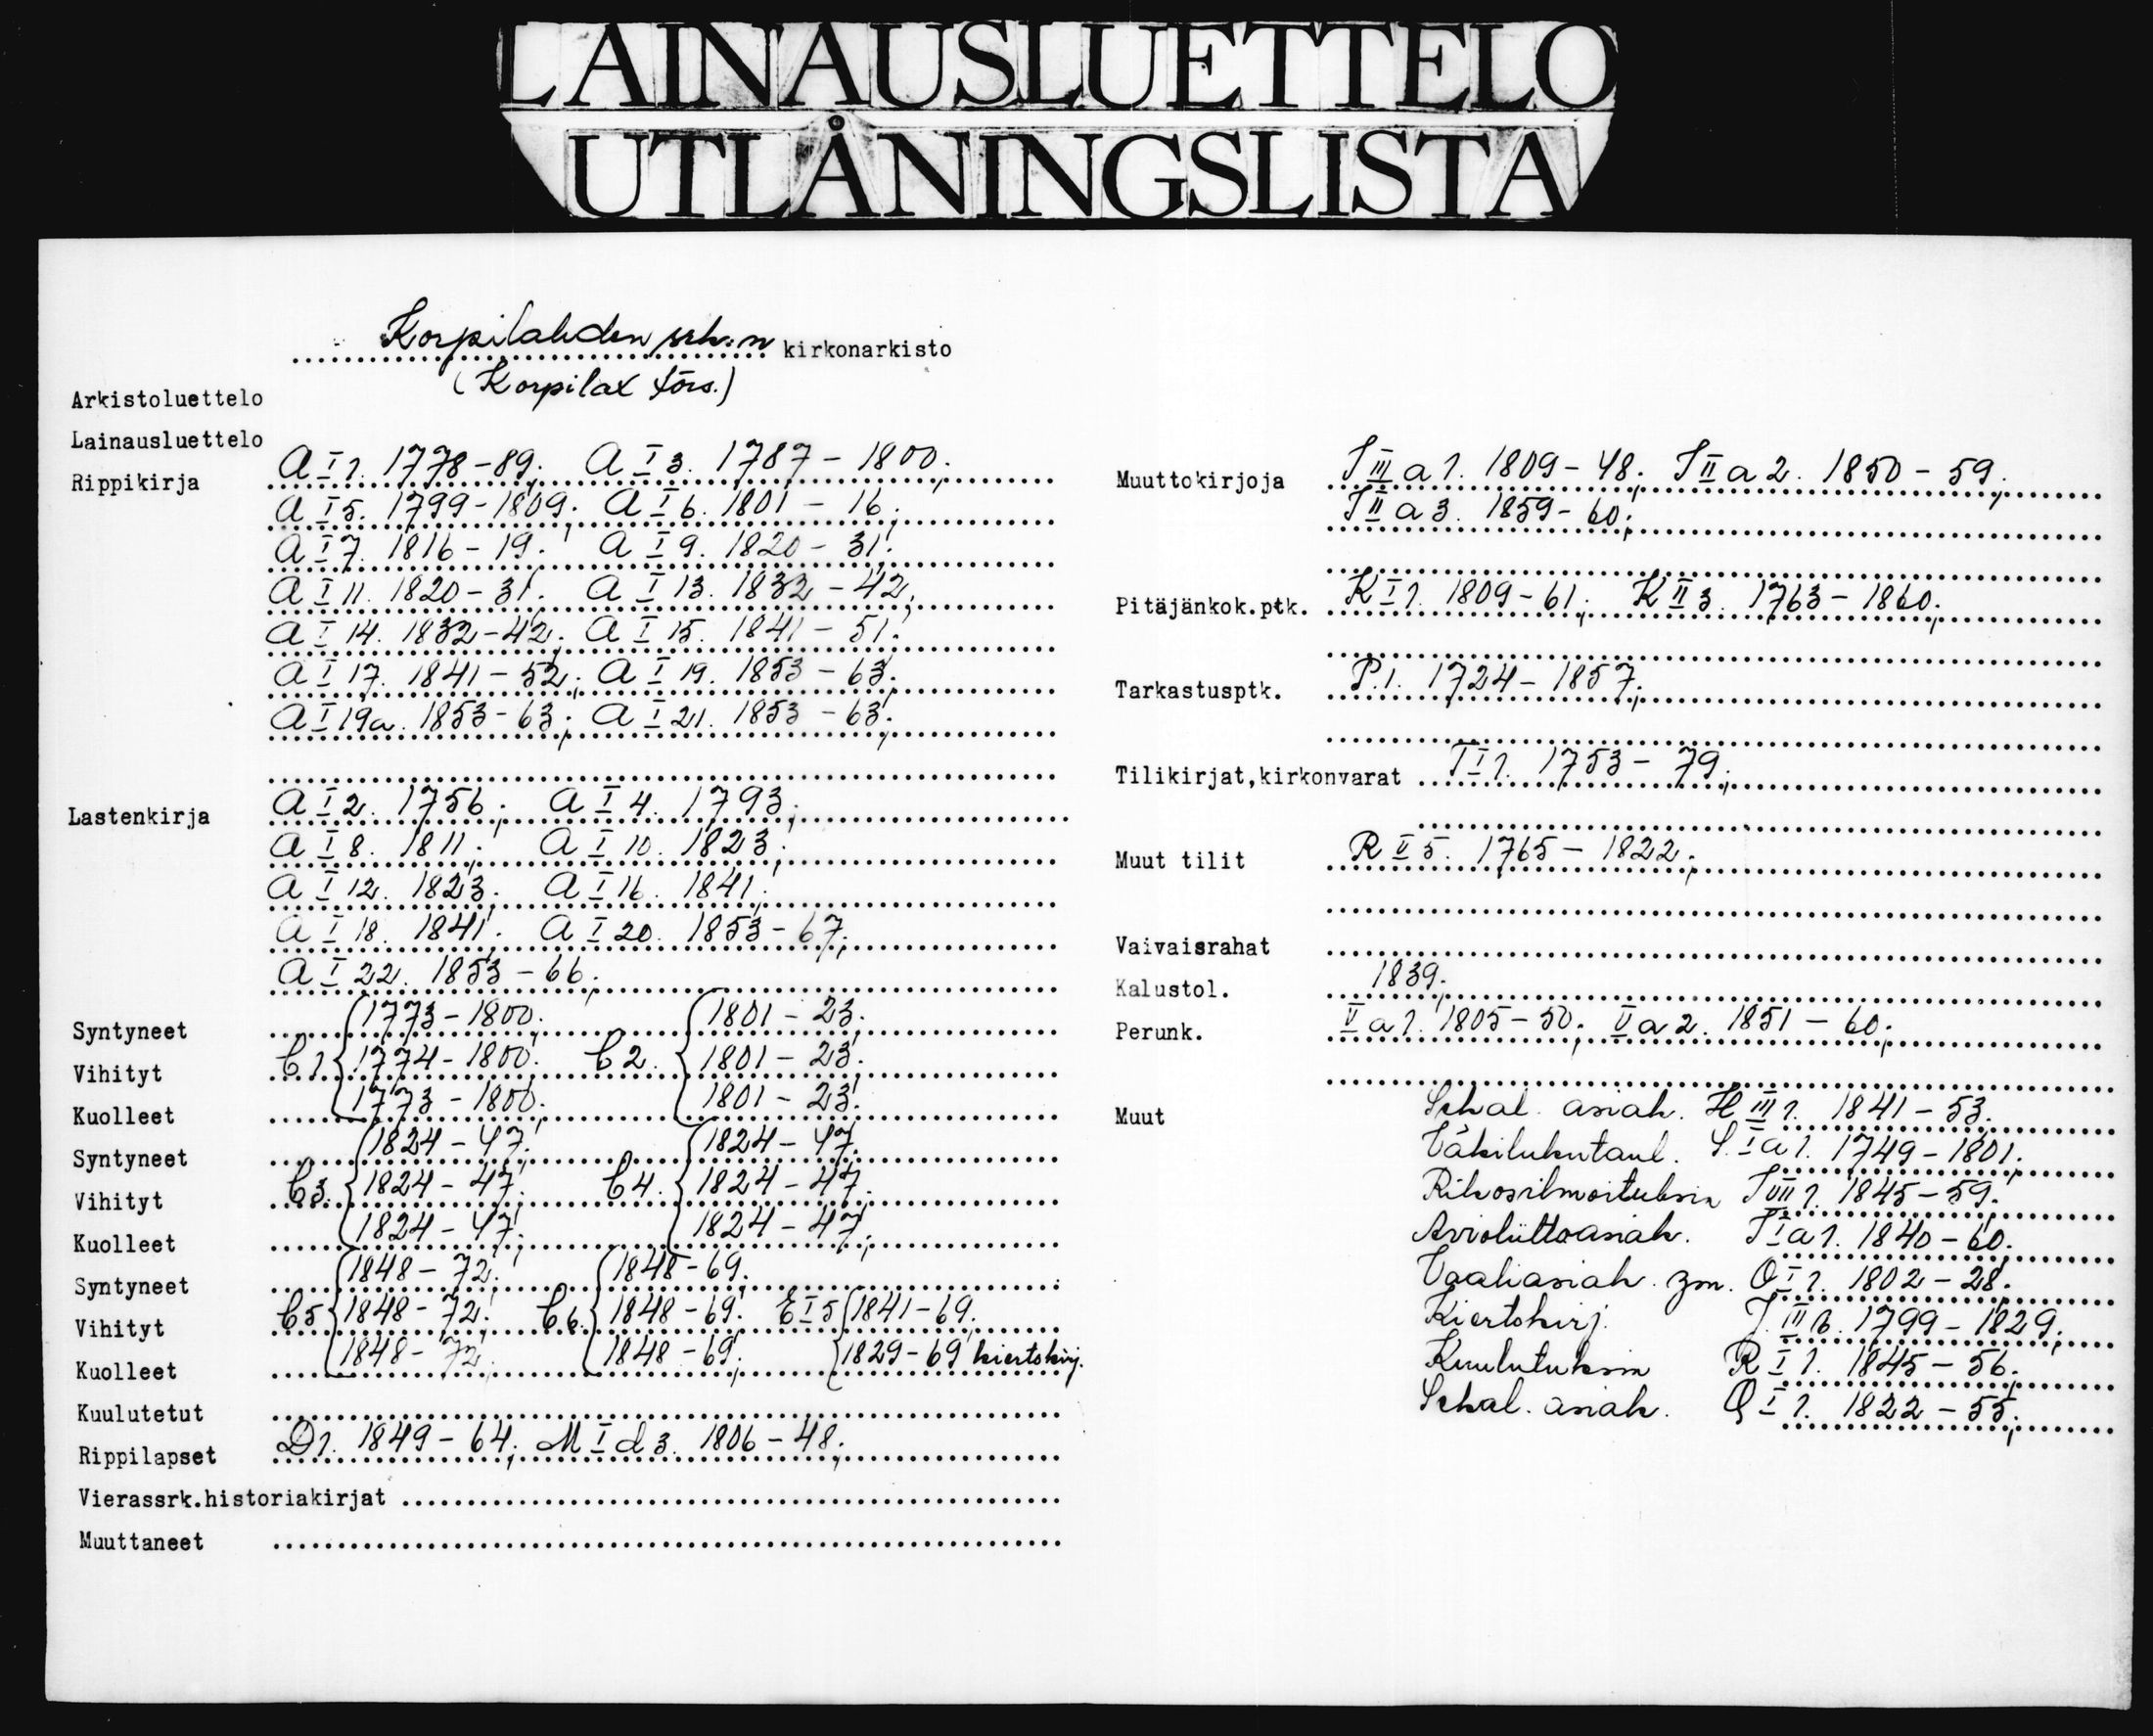 LAINAUSLUETTELO
UTLÅNINGSLISTA
Korpilahden srk:n kirkonarkisto
(Korpilax förs.)
Arkistoluettelo
Lainausluettelo
Rippikirja A I 1. 1778-89; A I 3. 1787-1800;
A I 5. 1799-1809; A I 6. 1801-16;
A I 7. 1816-19; A I 9. 1820-31;
A I 11. 1820-31; A I 13. 1832-42;
A I 14. 1832-42; A I 15. 1841-51;
A I 17. 1841-52; A I 19. 1853-63;
A I 19a. 1853-63; A I 21. 1853-63;
Lastenkirja A I 2. 1756; A I 4. 1793;
A I 8. 1811; A I 10. 1823;
A I 12. 1823; A I 16. 1841;
A I 18. 1841; A I 20. 1853-67;
A I 22. 1853-66;
Syntyneet 1773-1800; 1801-23;
Vihityt C 1. 1774-1800; C 2. 1801-23;
Kuolleet 1773-1800; 1801-23;
Syntyneet 1824-47; 1824-47;
Vihityt C 3. 1824-47; C 4. 1824-47;
Kuolleet 1824-47; 1824-47;
Syntyneet 1848-72; 1848-69;
Vihityt C 5 1848-72; C 6. 1848-69; E I 5 1841-69.
Kuolleet 1848-72; 1848-69; 1829-69 kiertokirj.
Kuulutetut
Rippilapset D 1. 1849-64; M I d 3. 1806-48;
Vierassrk.historiakirjat
Muuttaneet
Muuttokirjoja J III a 1. 1809-48; J II a 2. 1850-59;
J II a 3. 1859-60;
Pitäjänkok.ptk. K I 1. 1809-61; K II 3. 1763-1860;
Tarkastusptk. P. 1. 1724-1857;
Tilikirjat,kirkonvarat T I 1. 1753-79;
Muut tilit R II 5. 1765-1822;
Vaivaisrahat
Kalustol. 1839;
Perunk. V a 1. 1805-50; V a 2. 1851-60;
Muut Sekal. asiak. H III 1. 1841-53.
Väkilukutaul. I a 1. 1749-1801;
Rikosilmoituksia J VII 1. 1845-59;
Avioliittoasiak. J I a 1. 1840-60;
Vaaliasiak. ym. O I 1. 1802-28;
Kiertokirj. J. III b. 1799-1829;
Kuulutuksia R I 1. 1845-56;
Sekal. asiak. Q I 1. 1822-55;